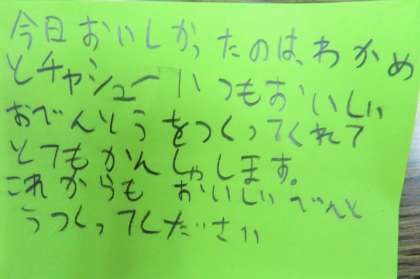 今日おいしかったのは、わかめ
とチャシューいつもおいしい
おべんとうをつくってくれて
とてもかんしゃします。
これからも おいしいべんと
うつくってください